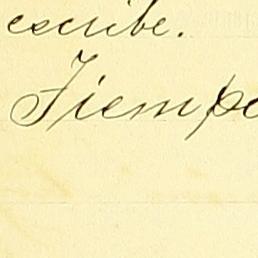 escribe.
Tiempo